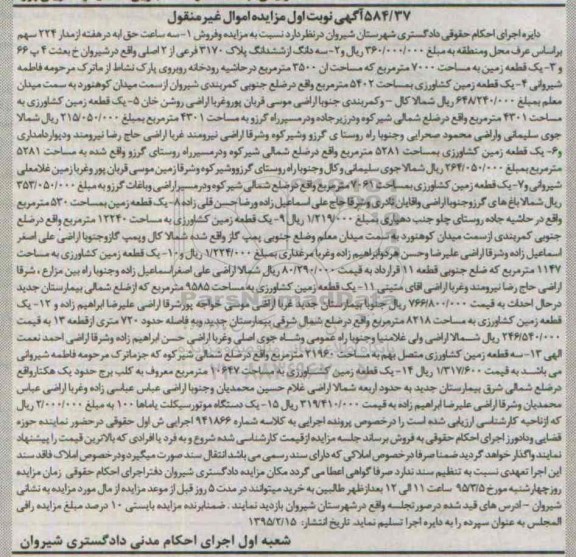 ۵۸۴/۳۷آگهی نوبت اول مزایده اموال غیر منقول
دایره اجرای احکام حقوقی دادگستری شهرستان شیروان در نظر دارد نسبت به مزایده و فروش ۱-سه ساعت حق ابه در هفته از مدار ۲۲۴ سهم
براساس عرف محل ومنطقه به مبلغ ۳۶۰/۰۰۰/۰۰۰ ریال و۲-سه دانگ ازششدانگ پلاک ۳۱۷۰ فرعی از ۲ اصلی واقع درشیروان خ بعثت ۴ پ ۶۶
و ۳-یک قطعه زمین به مساحت ۷۰۰۰ مترمربع که مساحت ان ۳۵۰۰ مترمربع درحاشیه رودخانه روبروی پارک نشاط از ماترک مرحومه فاطمه
شیروانی ۴-یک قطعه زمین کشاورزی بمساحت ۵۴۰۲ مترمربع واقع درضلع جنوبی کمربندی شیروان ازسمت میدان کوهنورد به سمت میدان
معلم بمبلغ ۶۴۸/۲۴۰/۰۰۰ ریال شمالا کال - وکمربندی جنوبا اراضی موسی قربان پوروغربا اراضی روشن خان ۵-یک قطعه زمین کشاورزی به
مساحت ۴۳۰۱ مترمربع واقع درضلع شمالی شیرکوه ودرزیرجاده ودرمسیرراه گرزو به مساحت ۴۳۰۱ مترمربع بمبلغ ۲۱۵/۰۵۰/۰۰۰ ریال شمالا
جوی سلیمانی واراضی محمود صحرایی وجنوبا راه روستا ی گرزو وشیرکوه وشرقا اراضی نیرومند غربا اراضی حاج رضا نیرومند ودیواردامداری
و۶- یک قطعه زمین کشاورزی بمساحت ۵۲۸۱ مترمربع واقع درضلع شمالی شیرکوه ودرمسیرراه روستای گرزو واقع شده به مساحت ۵۲۸۱
مترمربع بمبلغ ۲۶۴/۰۵۰/۰۰۰ ریال شمالا جوی سلیمانی وکال وجنوبا راه روستای گرزووشیرکوه وشرقا زمین موسی قربان پور وغربا زمین غلامعلی
شیروانی و۷-یک قطعه زمین کشاورزی بمساحت ۷۰۶۱ مترمربع واقع درضلع شمالی شیرکوه ودرمسیراراضی وباغات گرزو به مبلغ ۳۵۳/۰۵۰/۰۰۰
ریال شمالا باغ های گرزوجنوبا اراضی وقایان نادری وشرقا حاج علی اسماعیل زاده ورضا حسن قلی زاده ۸-یک قطعه زمین بمساحت ۵۳۰ مترمربع
واقع در حاشیه جاده روستای چلو جنب دهیاری به مبلغ ۱/۲۱۹/۰۰۰ ریال ۹-یک قطعه زمین کشاورزی به مساحت ۱۲۲۴۰ مترمربع واقع درضلع
جنوبی کمربندی ازسمت میدان کوهنورد به سمت میدان معلم وضلع جنوبی پمپ گاز واقع شده شمالا کال وپمپ گازوجنوبا اراضی علی اصغر
اسماعیل زاده وشرقا اراضی علیرضا وحسن هردوابراهیم زاده وغربا مرغداری بمبلغ ۱/۲۲۴/۰۰۰ ریال و۱۰-یک قطعه زمین کشاورزی به مساحت
۱۱۴۷ مترمربع که ضلع جنوبی قطعه ۱۱ قرارداد به قیمت ۸۰/۲۹۰/۰۰۰ ریال شمالا اراضی علی اصغراسماعیل زاده وجنوبا راه بین مزارع ، شرقا
اراضی حاج رضا نیرومند وغربا اراضی اقای متینی ۱۱-یک قطعه زمین کشاورزی به مساحت ۹۵۸۵ مترمربع که ازضلع شمالی بیمارستان جدید
درحال احداث به قیمت ۷۶۶/۸۰۰/۰۰۰ ریال جنوبا بیمارستان جدید وغربا اراضی موسی خواجه پورشرقا اراضی علیرضا ابراهیم زاده و ۱۲-یک
قطعه زمین کشاورزی به مساحت ۸۲۱۸ مترمربع واقع درضلع شمال شرقی بیمارستان جدید وبه فاصله حدود ۷۲۰ متری ازقطعه ۱۳ به قیمت
۲۴۶/۵۴۰/۰۰۰ ریال شمالا اراضی ولی غلامنیا وجنوبا راه عمومی وشاه جوی اصلی وغربا اراضی حسن ابراهیم زاده وشرقا اراضی احمد نعمت
الهی ۱۳-سه قطعه زمین کشاورزی متصل بهم به مساحت ۲۱۹۶۰ مترمربع واقع درضلع شمالی شیرکوه که جزماترک مرحومه فاطمه شیروانی
می باشد به قیمت ۱/۳۱۷/۶۰۰ ریال ۱۴-یک قطعه زمین کشاورزی به مساحت ۱۰۶۴۷ مترمربع معروف به کلب برج حدود یک هکتارواقع
درضلع شمالی شرق بیمارستان جدید به حدود اربعه شمالا اراضی غلام حسین محمدیان وجنوبا اراضی عباس عباسی زاده وغربا اراضی عباس
محمدیان وشرقا اراضی علیرضا ابراهیم زاده به قیمت ۳۱۹/۴۱۰/۰۰۰ ریال ۱۵-یک دستگاه موتورسیکلت یاماها ۱۰۰ به مبلغ ۲/۰۰۰/۰۰۰ ریال
که ازناحیه کارشناسی ارزیابی شده است را درخصوص پرونده اجرایی به کلاسه شماره ۹۴۱۸۶۶ اجرایی ش اول حقوقی درحضور نماینده حوزه
قضایی ودادورز اجرای احکام حقوقی به فروش برساند جلسه مزایده ازقیمت کارشناسی شده شروع و به فرد یا افرادی که بالاترین قیمت را پیشنهاد
نمایند واگذار خواهد گردید ضمنا صرفا درخصوص املاکی که دارای سند رسمی می باشد انتقال سند صورت میگیرد ودرخصوص املاک فاقد سند
این اجرا تعهدی نسبت به تنظیم سند ندارد صرفا گواهی اعطا می گردد مکان مزایده دادگستری شیروان دفتراجرای احکام حقوقی زمان مزایده
روزچهارشنبه مورخ ۹۵/۳/۵ ساعت ۱۱ الی ۱۲ بعدازظهر طالبین به خرید میتوانند در مدت ۵ روز قبل از موعد مزایده از مال مورد مزایده به نشانی
شیروان - ادرس های قید شده درصورتجلسه واقع درشهرستان شیروان بازدید نمایند . ضمنابرنده مزایده بایستی ۱۰ درصد مبلغ مزایده رافی
المجلس به عنوان سپرده را به دایره اجرا تسلیم نماید. تاریخ انتشار: ۱۳۹۵/۲/۱۵
شعبه اول اجرای احکام مدنی دادگستری شیروان